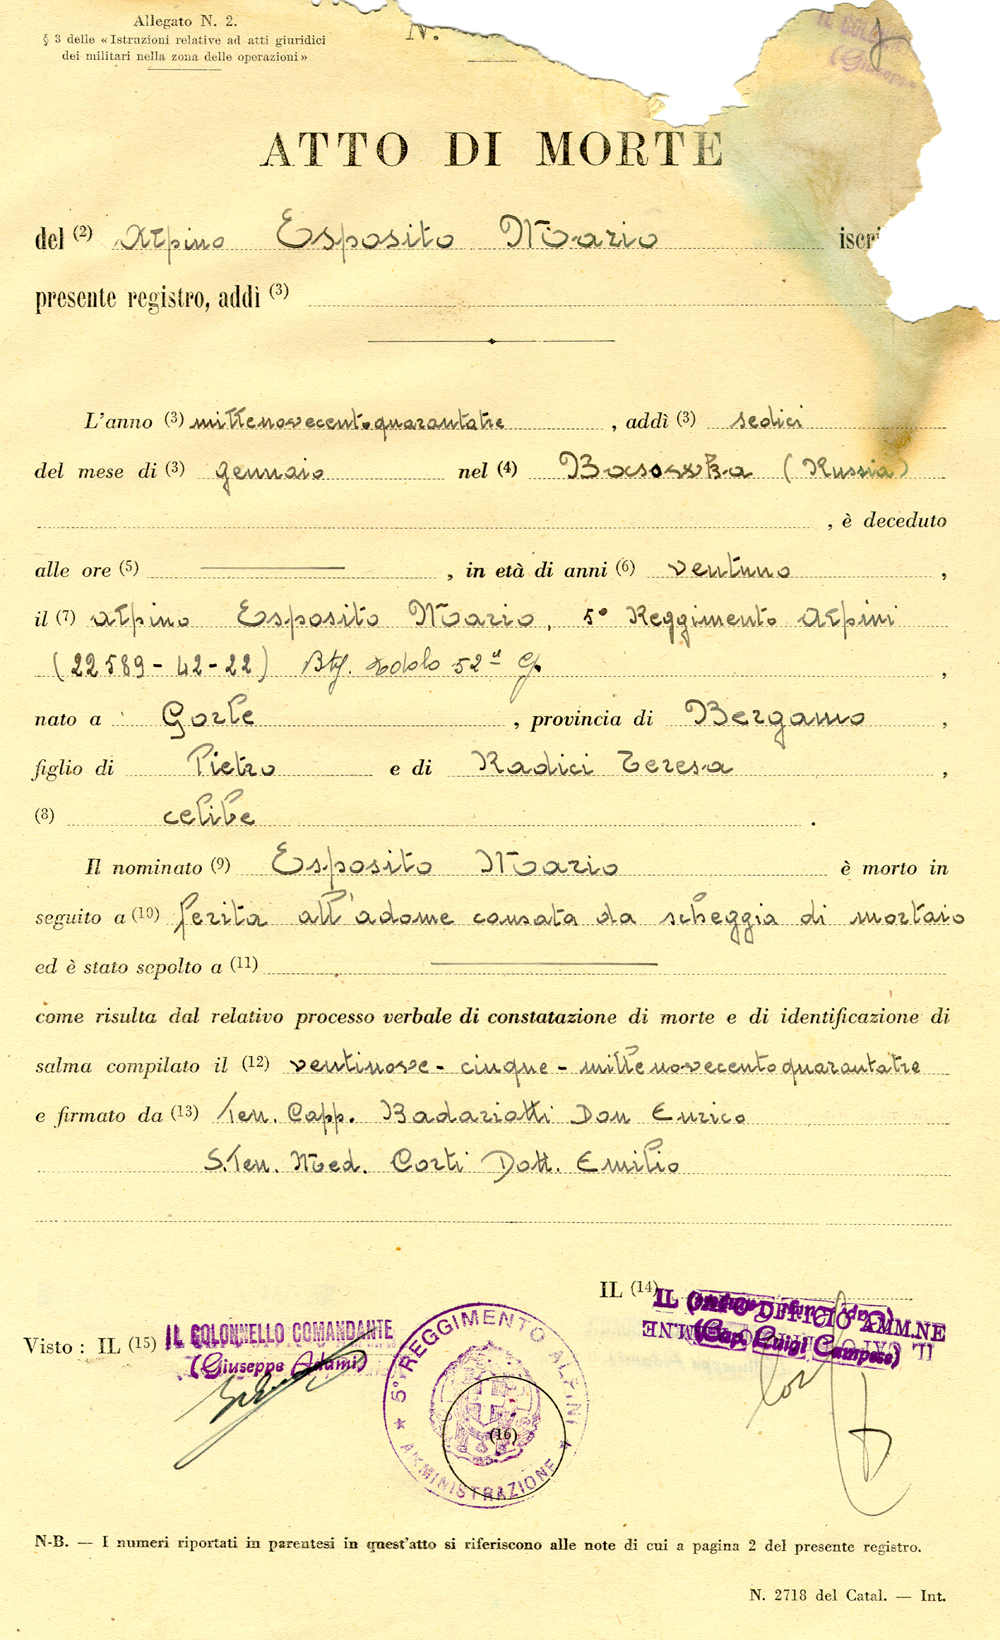 Allegato N. 2.
§ 3 delle « Istruzioni relative ad atti giuridici
dei militari nella zona delle operazioni »
N.
IL COLONN
(Giuseppe
ATTO DI MORTE
del (2) Alpino Esposito Mario iscri
presente registro, addì (3)
L'anno (3) millenovecentoquarantatre, addì (3) sedici
del mese di (3) gennaio nel (4) Basowka (Russia)
, è deceduto
alle ore (5) , in età di anni (6) ventuno ,
il (7) alpino Esposito Mario, 5° Reggimento Alpini
(22589-42-22) Btg. Edolo 52ª Cp. ,
nato a Gorle , provincia di Bergamo ,
figlio di Pietro e di Radici Teresa ,
(8) celibe .
Il nominato (9) Esposito Mario è morto in
seguito a (10) ferita all'adome causata da scheggia di mortaio
ed è stato sepolto a (11)
come risulta dal relativo processo verbale di constatazione di morte e di identificazione di
salma compilato il (12) ventinove - cinque - millenovecentoquarantatre
e firmato da (13) Ten. Capp. Badariotti Don Enrico
S.Ten. Med. Corti Dott. Emilio
IL (14)
IL CAPO UFFICIO AMM.NE
(Cap. Luigi Campese)
Visto : IL (15) IL COLONNELLO COMANDANTE
(Giuseppe Adami)
5° REGGIMENTO ALPINI
★ AMMINISTRAZIONE ★
(16)
N-B. — I numeri riportati in parentesi in quest'atto si riferiscono alle note di cui a pagina 2 del presente registro.
N. 2718 del Catal. — Int.